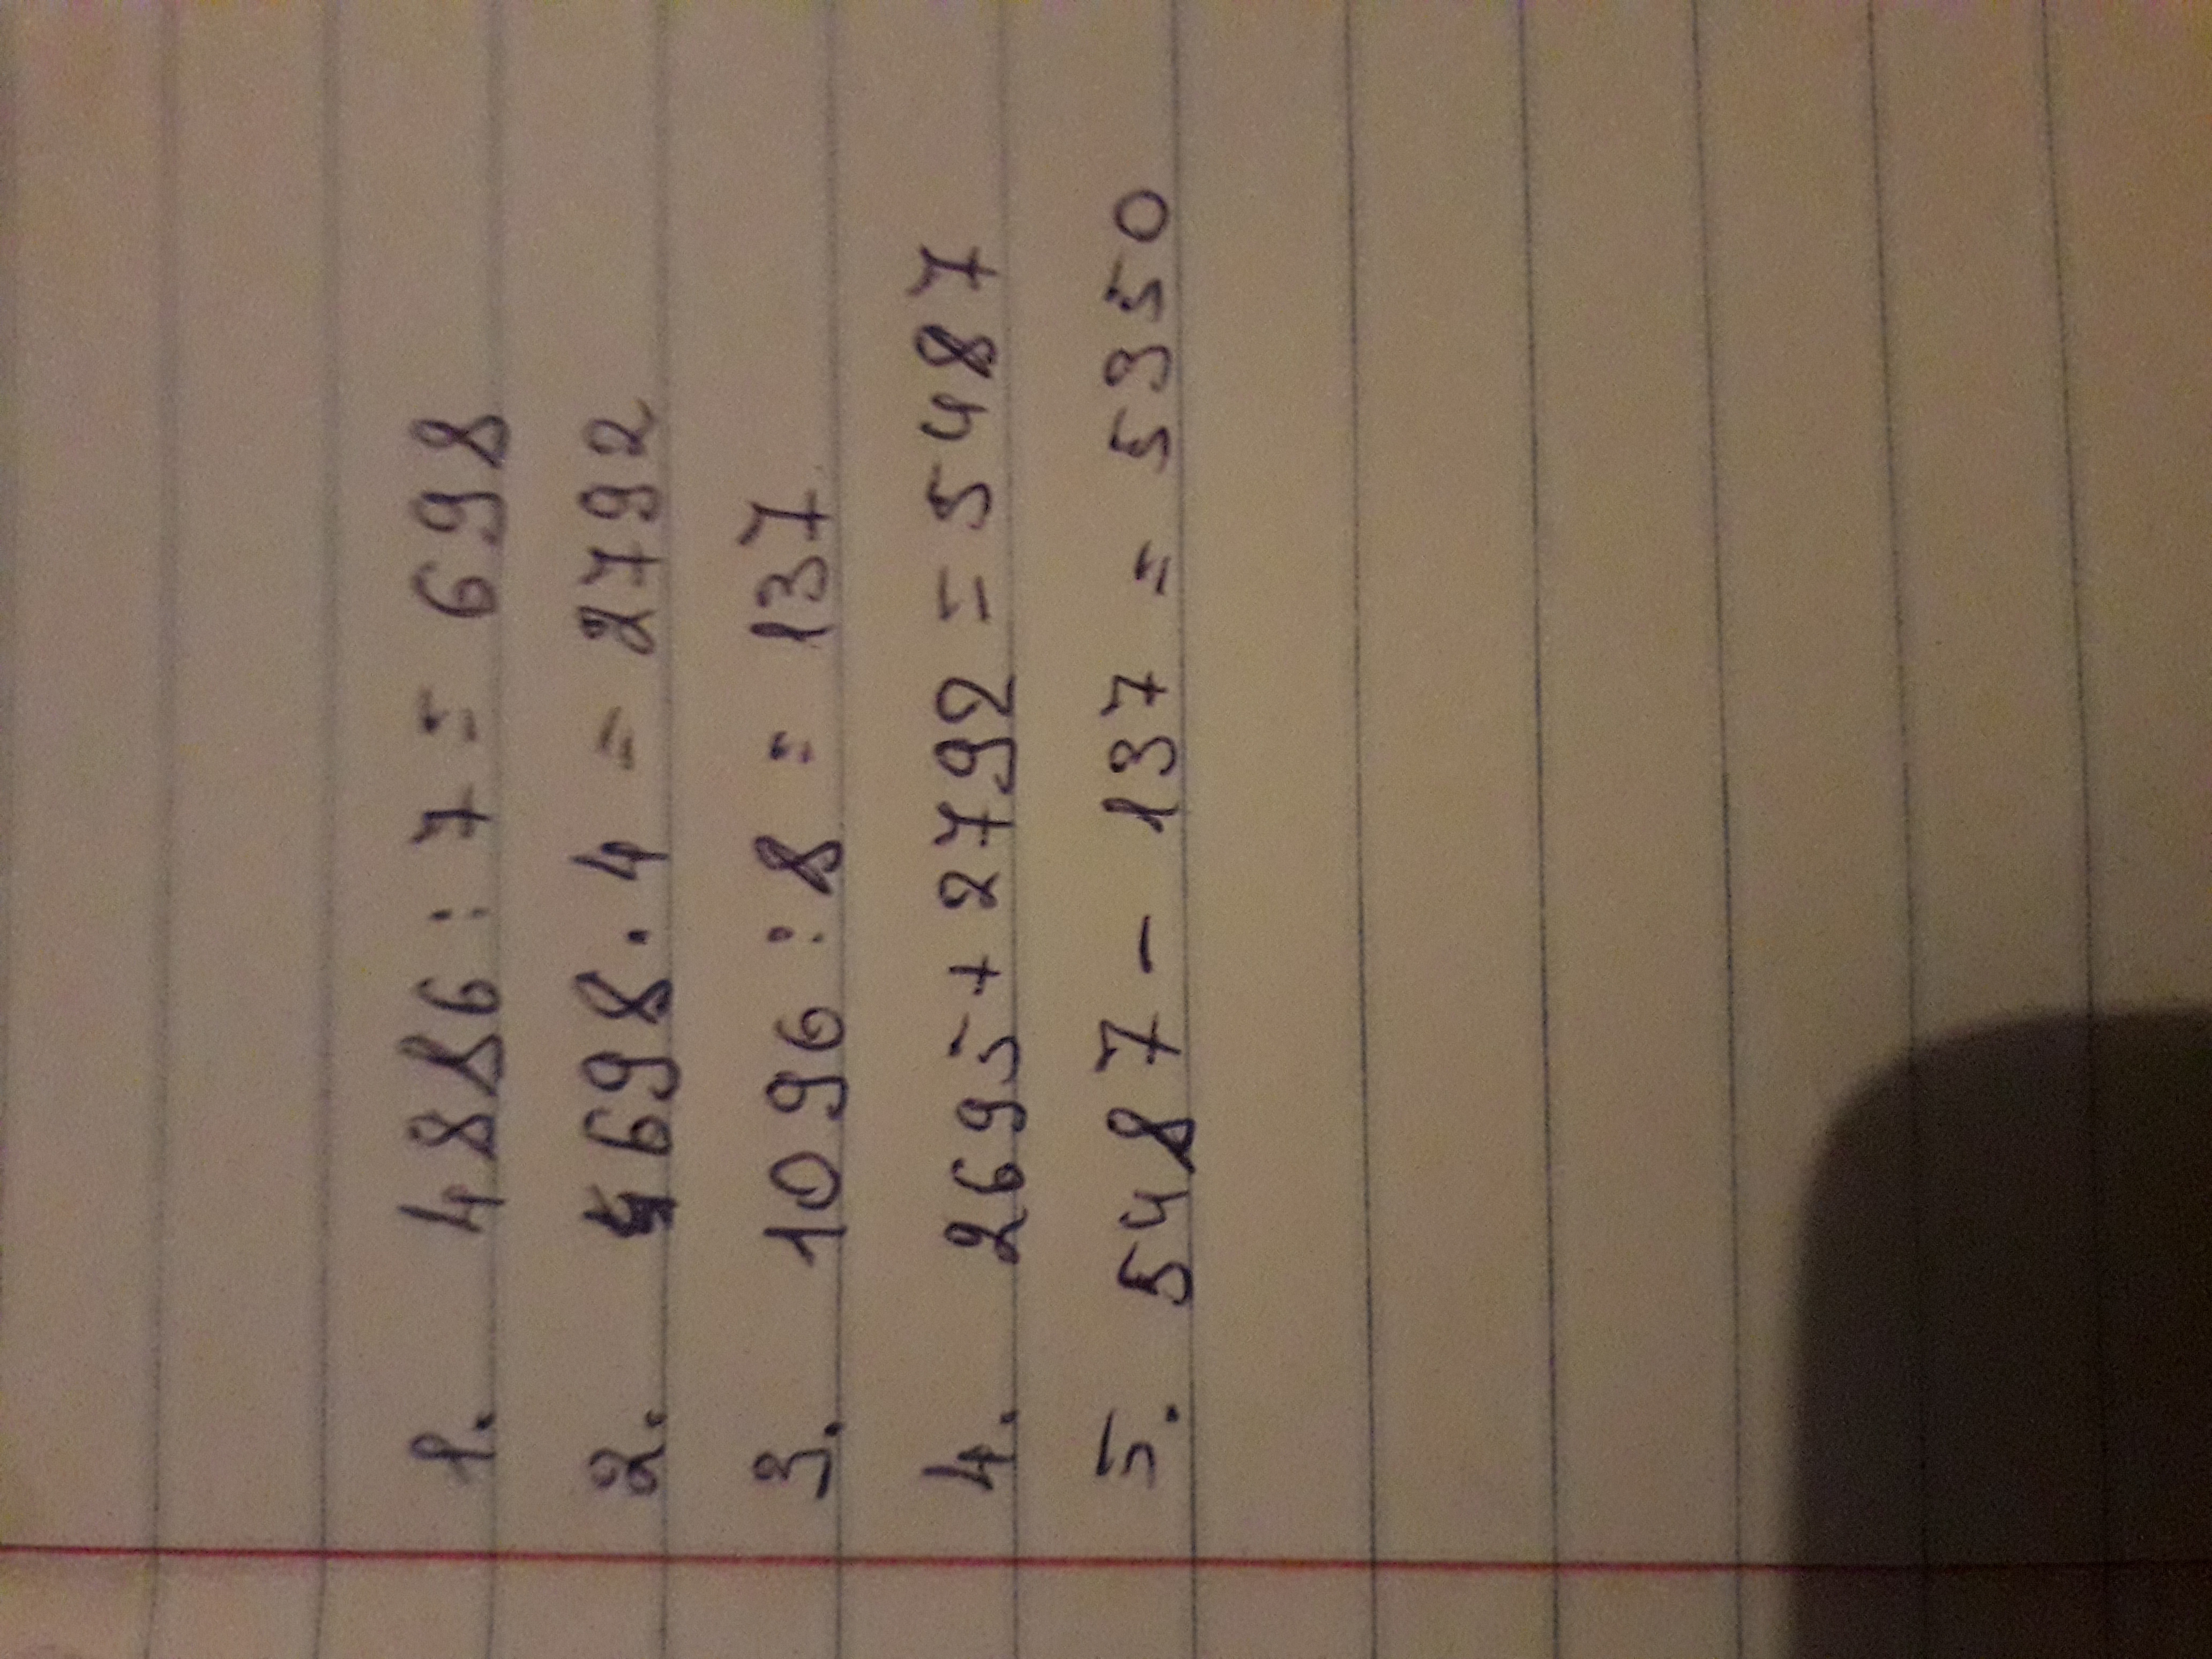 1. 4886 : 7 = 698
2. 698 . 4 = 2792
3. 1096 : 8 = 137
4. 2695 + 2792 = 5487
5. 5487 - 137 = 5350